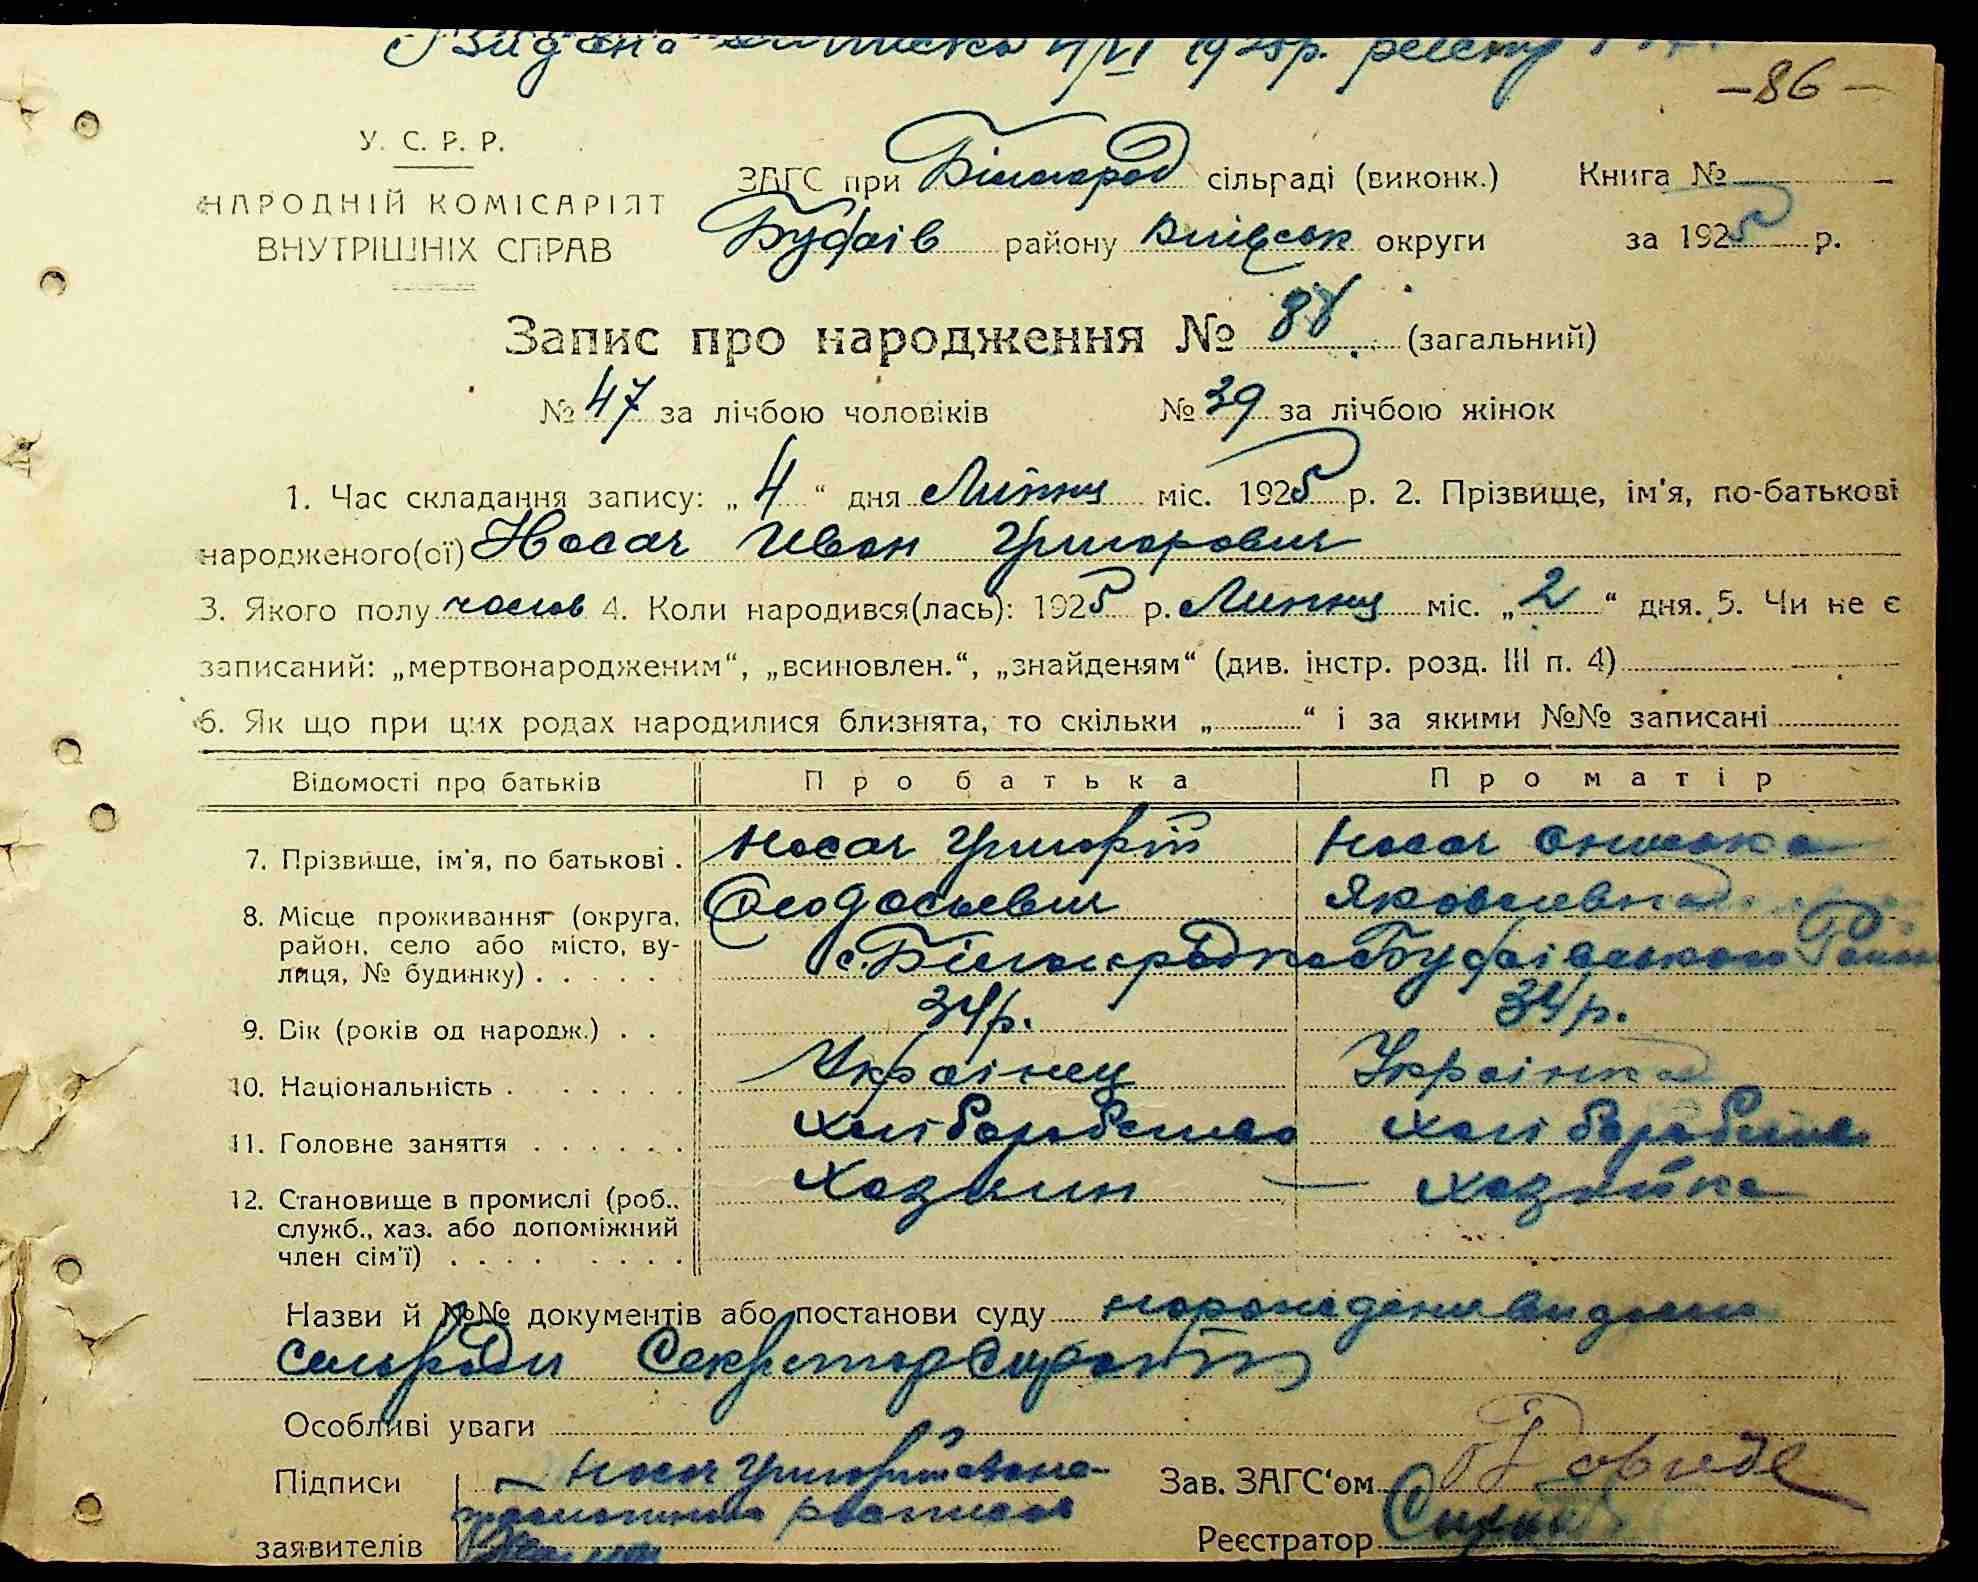 Видана виписка 4/VI 1925р. реєстр
–86–
У. С. Р. Р.
НАРОДНІЙ КОМІСАРІЯТ
ВНУТРІШНІХ СПРАВ
ЗАГС при Білогород сільраді (виконк.) Книга №
Будаїв району Київськ округи за 1925 р.
Запис про народження № (загальний)
№ 47 за лічбою чоловіків № 39 за лічбою жінок
1. Час складання запису: „4“ дня Липня міс. 1925 р. 2. Прізвище, ім'я, по-батькові
народженого(ої) Носач Иван Григорович
3. Якого полу чолов 4. Коли народився(лась): 1925 р. Липня міс. „2“ дня. 5. Чи не є
записаний: „мертвонародженим“, „всиновлен.“, „знайденям“ (див. інстр. розд. III п. 4)
6. Як що при цих родах народилися близнята, то скільки „ “ і за якими №№ записані
Відомості про батьків Про батька Про матір
7. Прізвище, ім'я, по батькові . Носач Григорій Носач Ониська
8. Місце проживання (округа, Феодосьевич Яковлевна
район, село або місто, ву- с. Білогородка Будаівського Району
лиця, № будинку) . . . . .
9. Вік (років од народж.) . . 34р. 34р.
10. Національність . . . . . . . Українец Українка
11. Головне заняття . . . . . . Хлібороբство Хлібороբство
12. Становище в промислі (роб., Хазяин — Хазяйка
служб., хаз. або допоміжний
член сім'ї) . . . . . . . .
Назви й №№ документів або постанови суду
сельради Секретар
Особливі уваги
Підписи Носач Григорій Зав. ЗАГС'ом
Реєстратор
заявителів